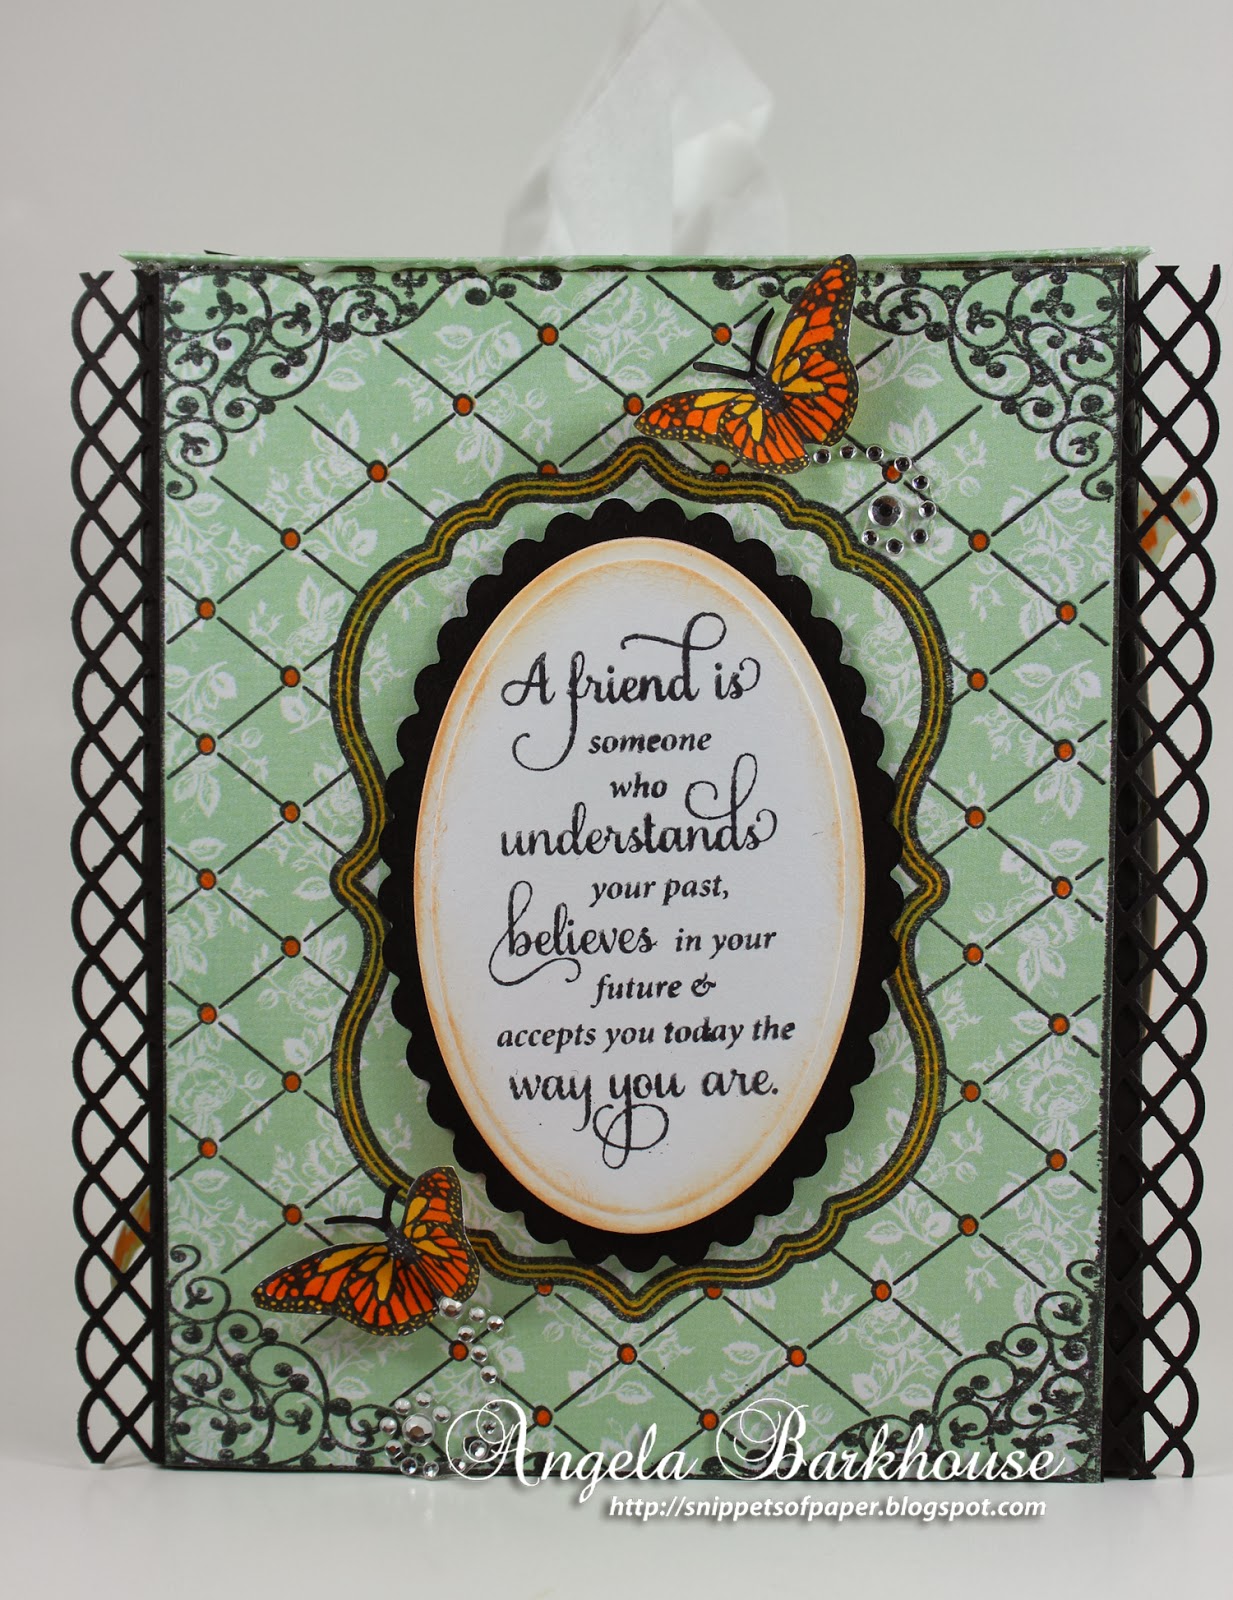 A friend is
someone
who
understands
your past,
believes in your
future &
accepts you today the
way you are.
Angela Barkhouse
http://snippetsofpaper.blogspot.com